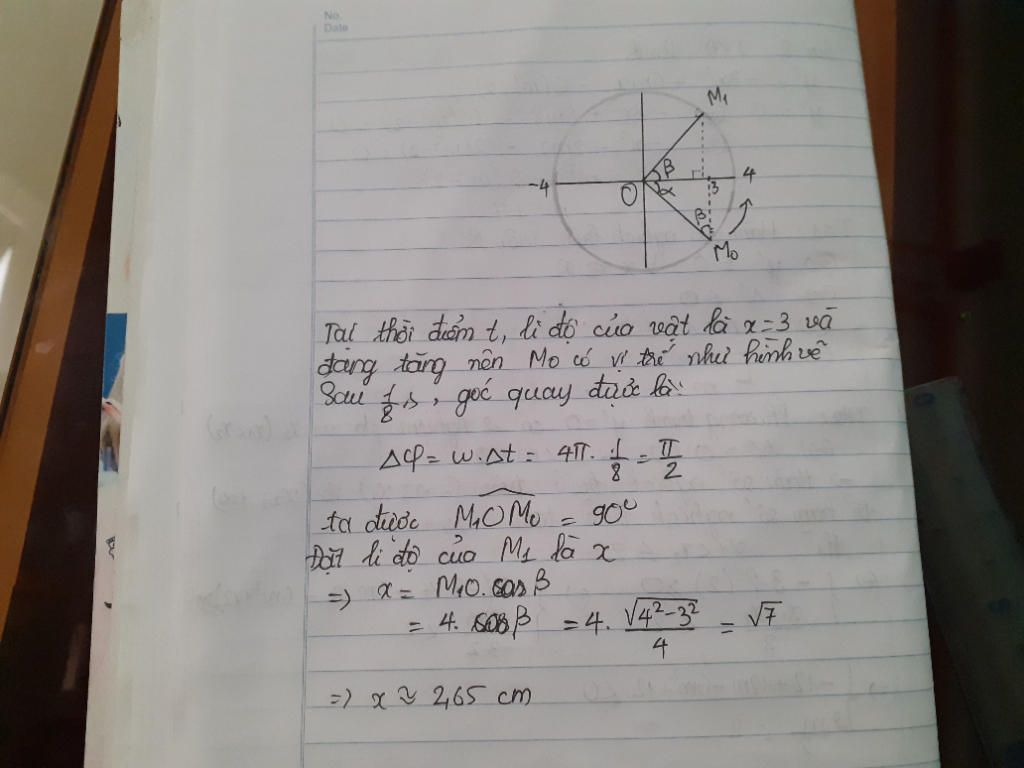 No.
Date
M₁
β
-4
O
α
3
4
β
M₀
Tại thời điểm t, li độ của vật là x=3 và
đang tăng nên M₀ có vị trí như hình vẽ
Sau 1/8 s, góc quay được là:
Δφ = ω.Δt = 4π. 1/8 = π/2
ta được M₁OM₀ = 90°
Đặt li độ của M₁ là x
=> x = M₁O. cos β
= 4. cos β = 4. √(4²-3²)/4 = √7
=> x ≈ 2,65 cm